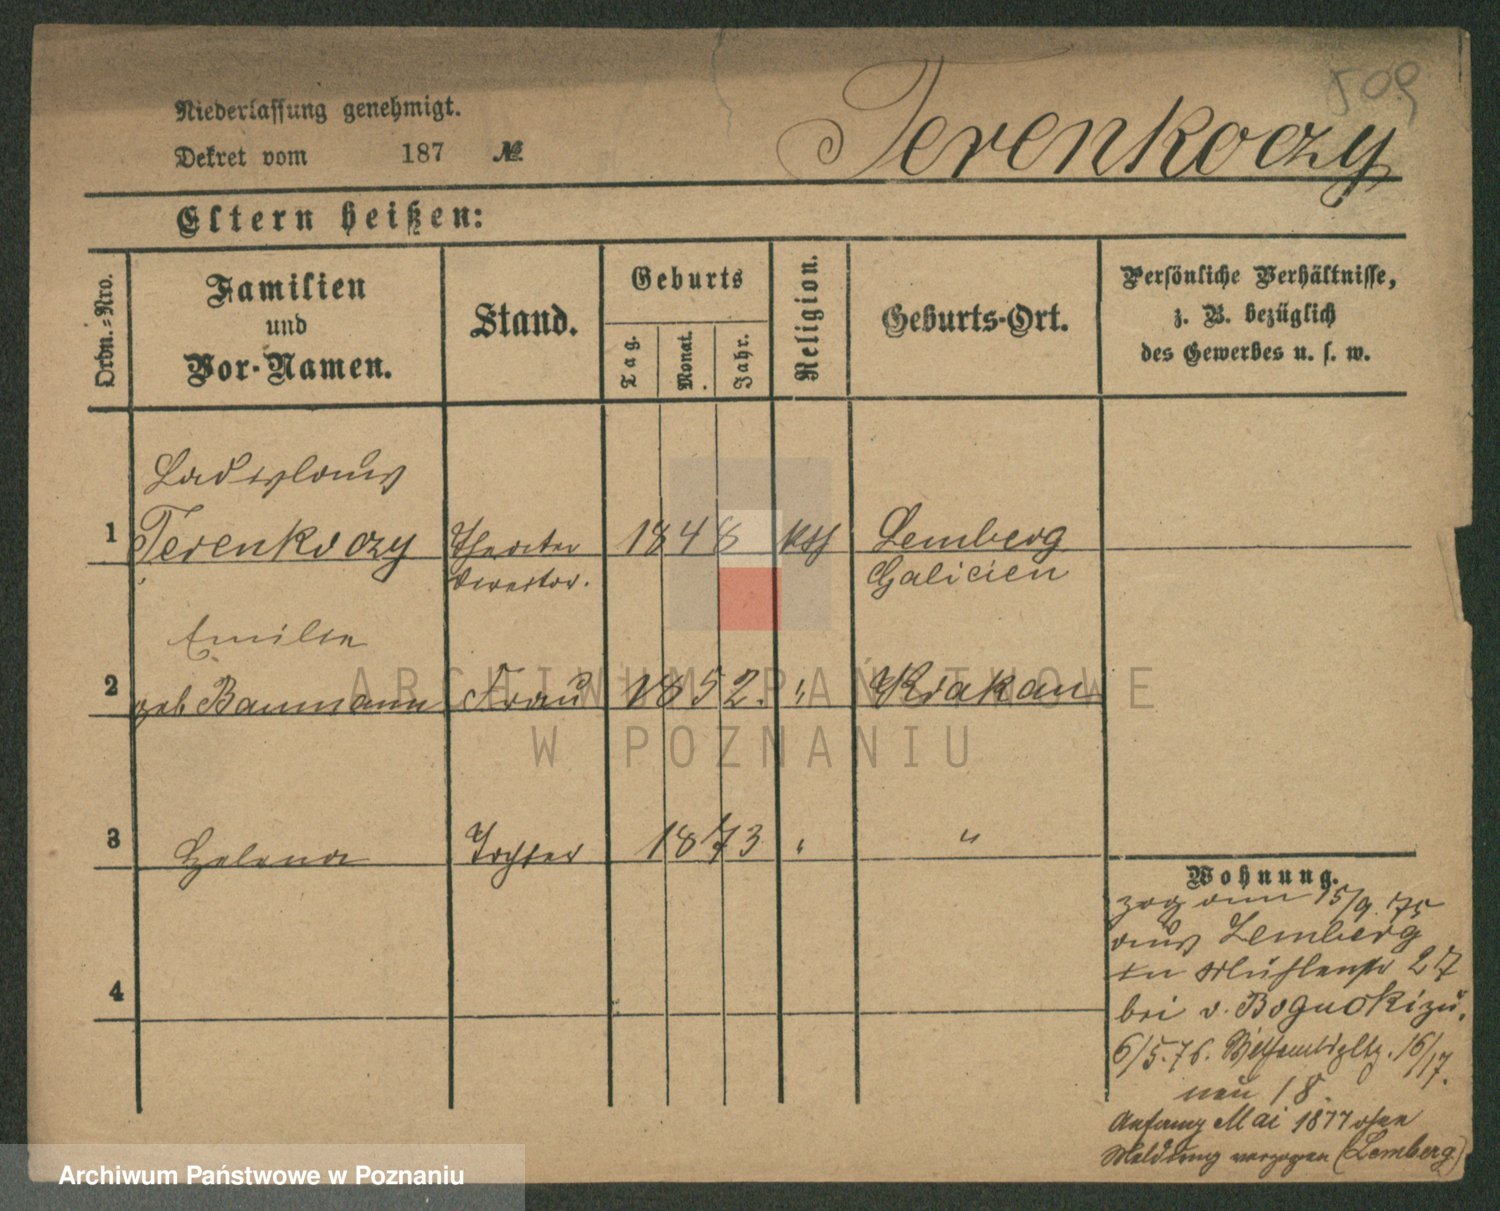 509
Niederlassung genehmigt.
Dekret vom 187 №
Terenkoczy
Eltern heißen:
Ordn.=Nro.
Familien
und
Vor-Namen.
Stand.
Geburts
Tag.
Monat.
Jahr.
Religion.
Geburts-Ort.
Persönliche Verhältnisse,
z. B. bezüglich
des Gewerbes u. s. w.
Ladislaus
1 Terenkoczy Theater 1848 kth Lemberg
Director. Galicien
Emilie
2 geb Baumann Frau 1852. " Krakau
3 Helena Tochter 1873 " "
4
Wohnung.
zog am 15/9. 75
aus Lemberg
in Mühlenstr 27
bei v.
6/5.76. 16/17.
neu 18.
Anfang Mai 1877 ohne
Meldung verzogen (Lemberg)
ARCHIWUM PAŃSTWOWE
W POZNANIU
Archiwum Państwowe w Poznaniu